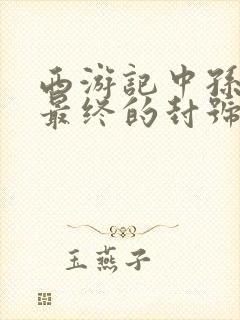 西游記中孫
最终的封號
玉燕子